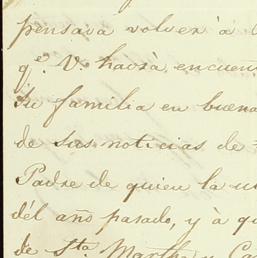 pensava volver à
qe. V. havrà encuen
su familia en buena
de sus noticias de
Padre de quien la u
dél año pasado, y à q
de Sta. Martha y Ca